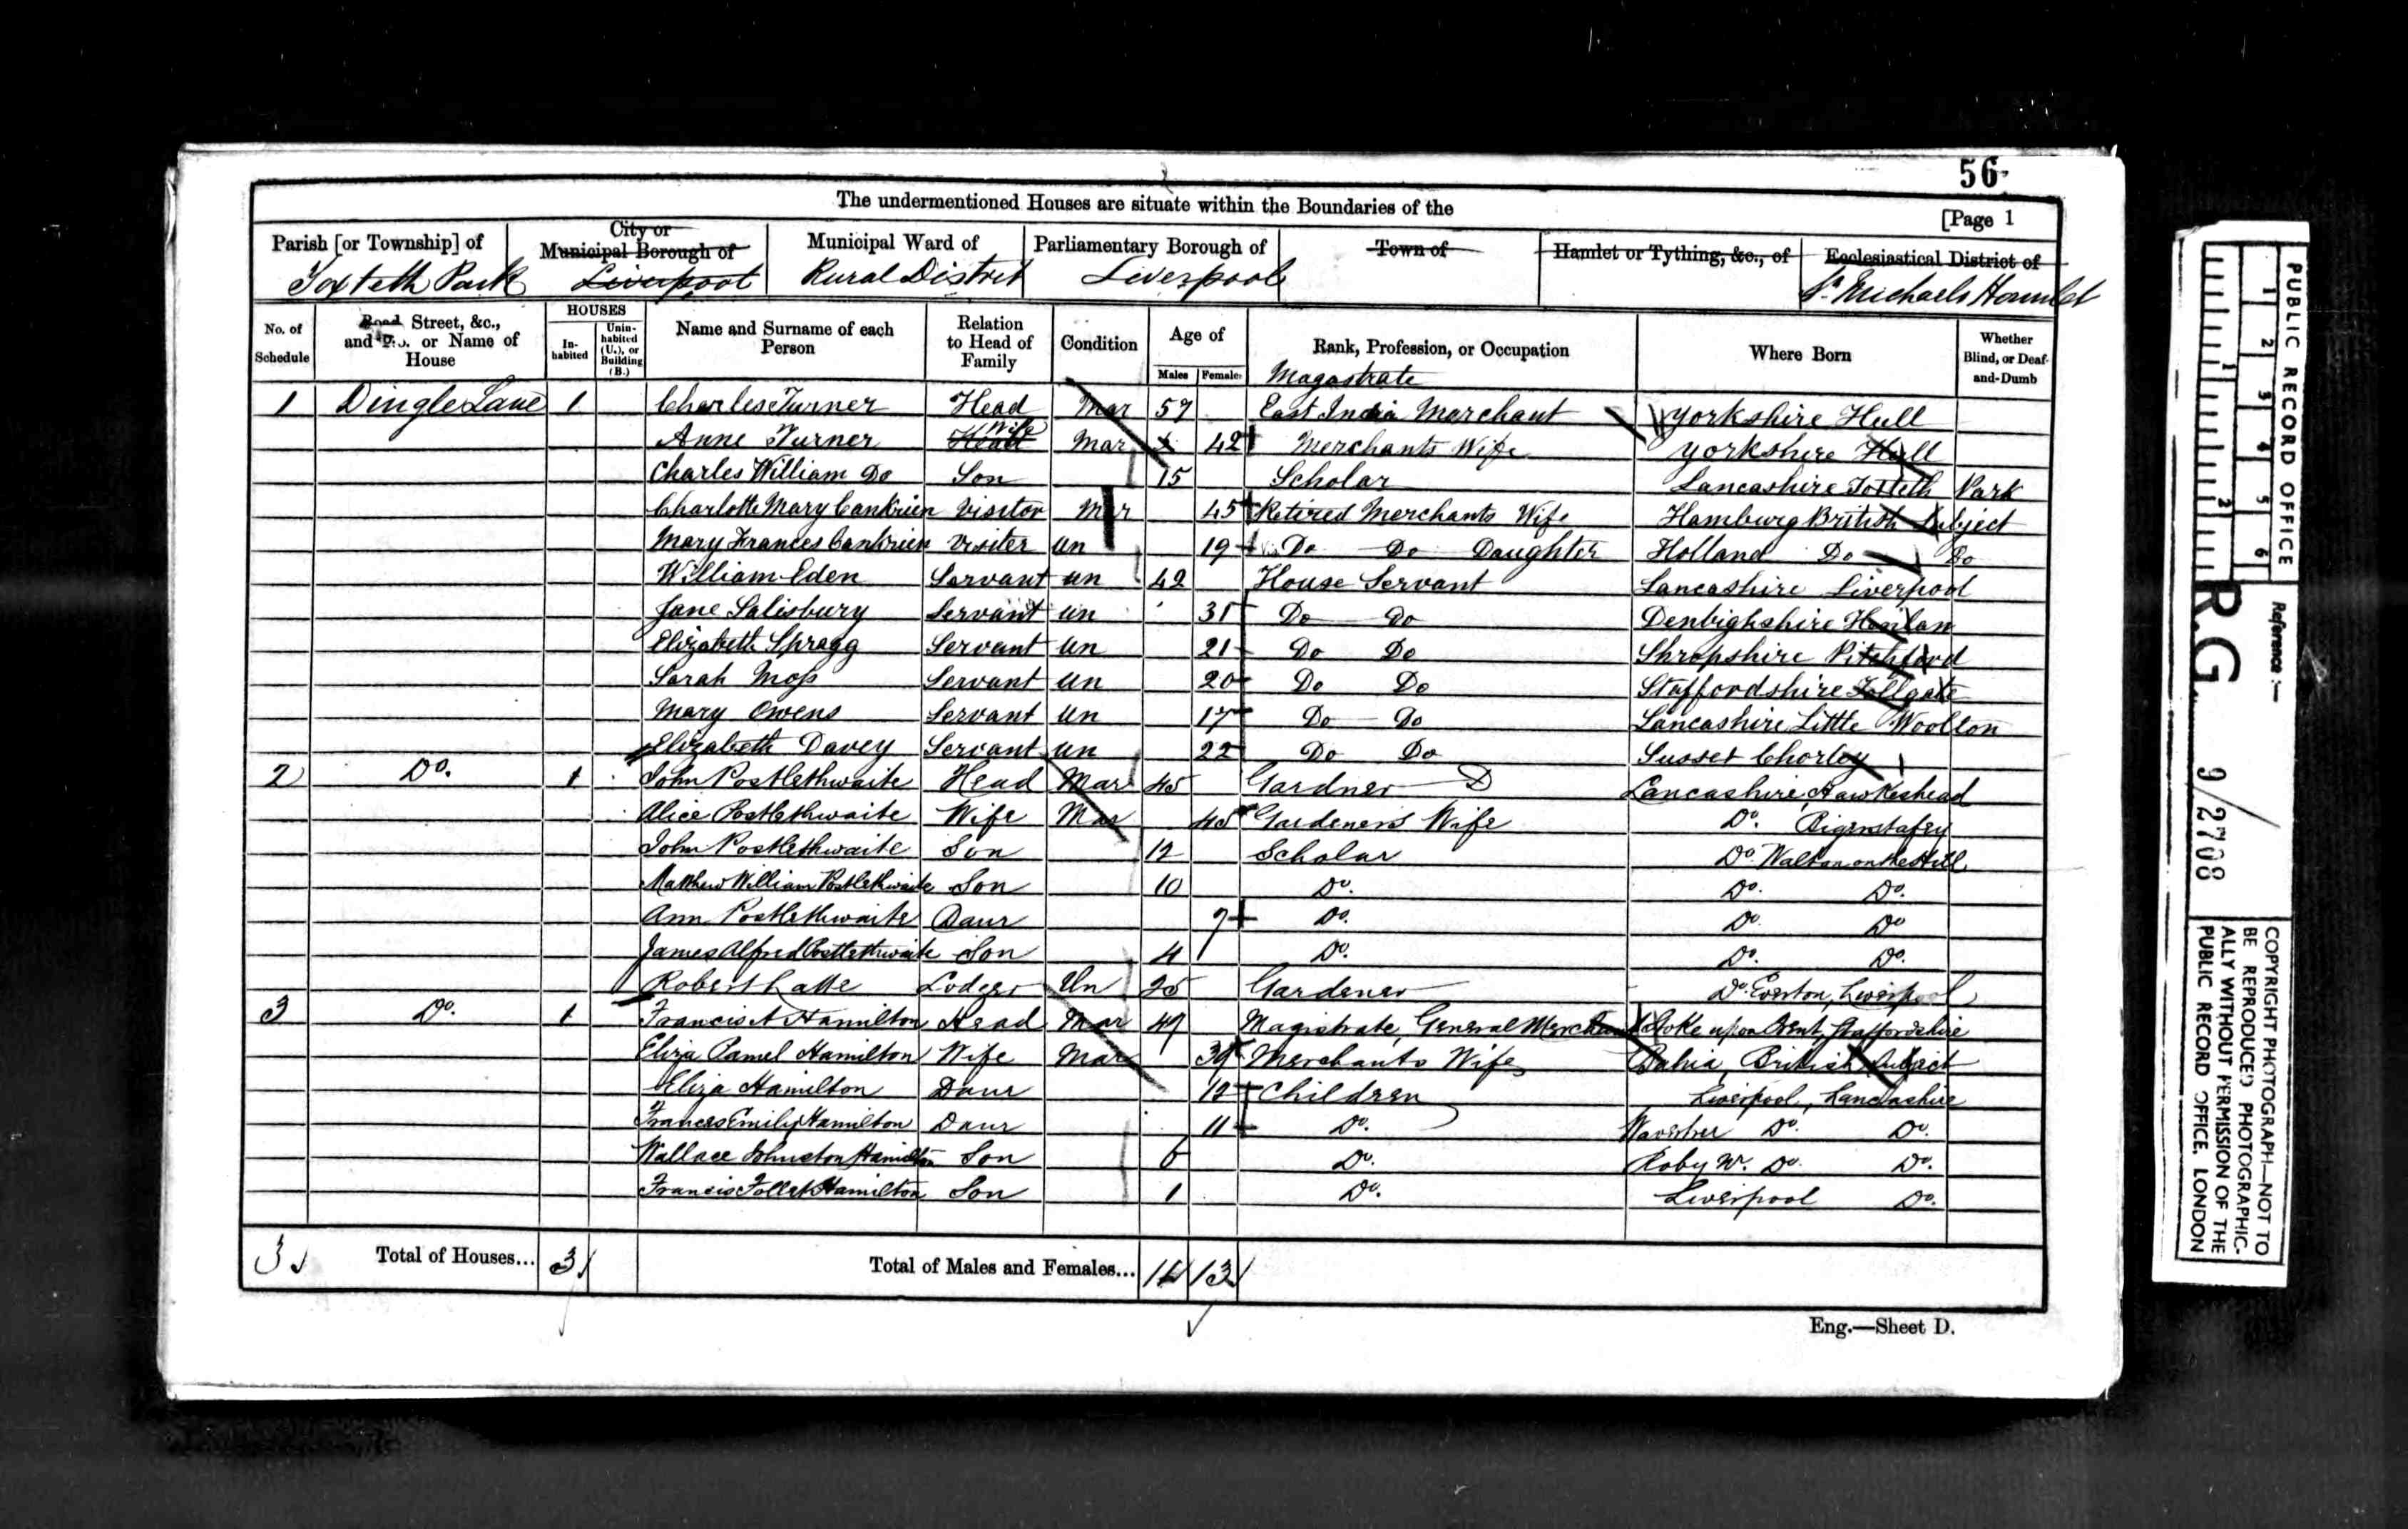 56
The undermentioned Houses are situate within the Boundaries of the
[Page 1
Parish [or Township] of
Toxteth Park
City or
Municipal Borough of
Liverpool
Municipal Ward of
Rural District
Parliamentary Borough of
Liverpool
Town of
Hamlet or Tything, &c., of
Ecclesiastical District of
St Michaels Hamlet
No. of Schedule
Road Street, &c., and No. or Name of House
HOUSES
In-habited
Unin-habited (U.), or Building (B.)
Name and Surname of each Person
Relation to Head of Family
Condition
Age of
Males
Females
Rank, Profession, or Occupation
Where Born
Whether Blind, or Deaf-and-Dumb
Magastrate
1 Dingle Lane 1 Charles Turner Head Mar 57 East India Marchant Yorkshire Hull
Anne Turner Head Wife Mar 42 Merchants Wife Yorkshire Hull
Charles William Do Son 15 Scholar Lancashire Toxteth Park
Charlotte Mary Cankrien Visitor Mar 45 Retired Merchants Wife Hamburg British Subject
Mary Frances Cankrien Visiter Un 19 Do Do Daughter Holland Do Do
William Eden Servant Un 42 House Servant Lancashire Liverpool
Jane Salisbury Servant Un 31 Do Do Denbighshire Henlan
Elizabeth Spragg Servant Un 21 Do Do Shropshire Pitchford
Sarah Moss Servant Un 20 Do Do Staffordshire Tollgate
Mary Owens Servant Un 17 Do Do Lancashire Little Woolton
Elizabeth Davey Servant Un 22 Do Do Sussex Chorley
2 Do. 1 John Postlethwaite Head Mar 45 Gardner Lancashire, Hawkeshead
Alice Postlethwaite Wife Mar 45 Gardeners Wife Do.
John Postlethwaite Son 12 Scholar Do. Walton on the Hill
Matthew William Postlethwaite Son 10 Do. Do. Do.
Ann Postlethwaite Daur 7 Do. Do Do
James Alfred Postlethwaite Son 4 Do. Do. Do.
Robert Lodger Un 25 Gardener Do. Everton, Liverpool
3 Do. 1 Francis A Hamilton Head Mar 49 Magistrate, General Merchant Stoke upon Trent, Staffordshire
Eliza Hamilton Wife Mar 39 Merchants Wife Bahia, British Subject
Eliza Hamilton Daur 12 Children Liverpool, Lancashire
Frances Emily Hamilton Daur 11 Do. Do. Do.
Wallace Johnston Hamilton Son 6 Do. Roby Nr. Do. Do.
Francis Hamilton Son 1 Do. Liverpool Do.
3 Total of Houses... 3 Total of Males and Females... 11 13
Eng.—Sheet D.
PUBLIC RECORD OFFICE
1 2 3 4 5 6
1 2
Reference:—
R.G. 9/2708
COPYRIGHT PHOTOGRAPH—NOT TO BE REPRODUCED PHOTOGRAPHICALLY WITHOUT PERMISSION OF THE PUBLIC RECORD OFFICE, LONDON